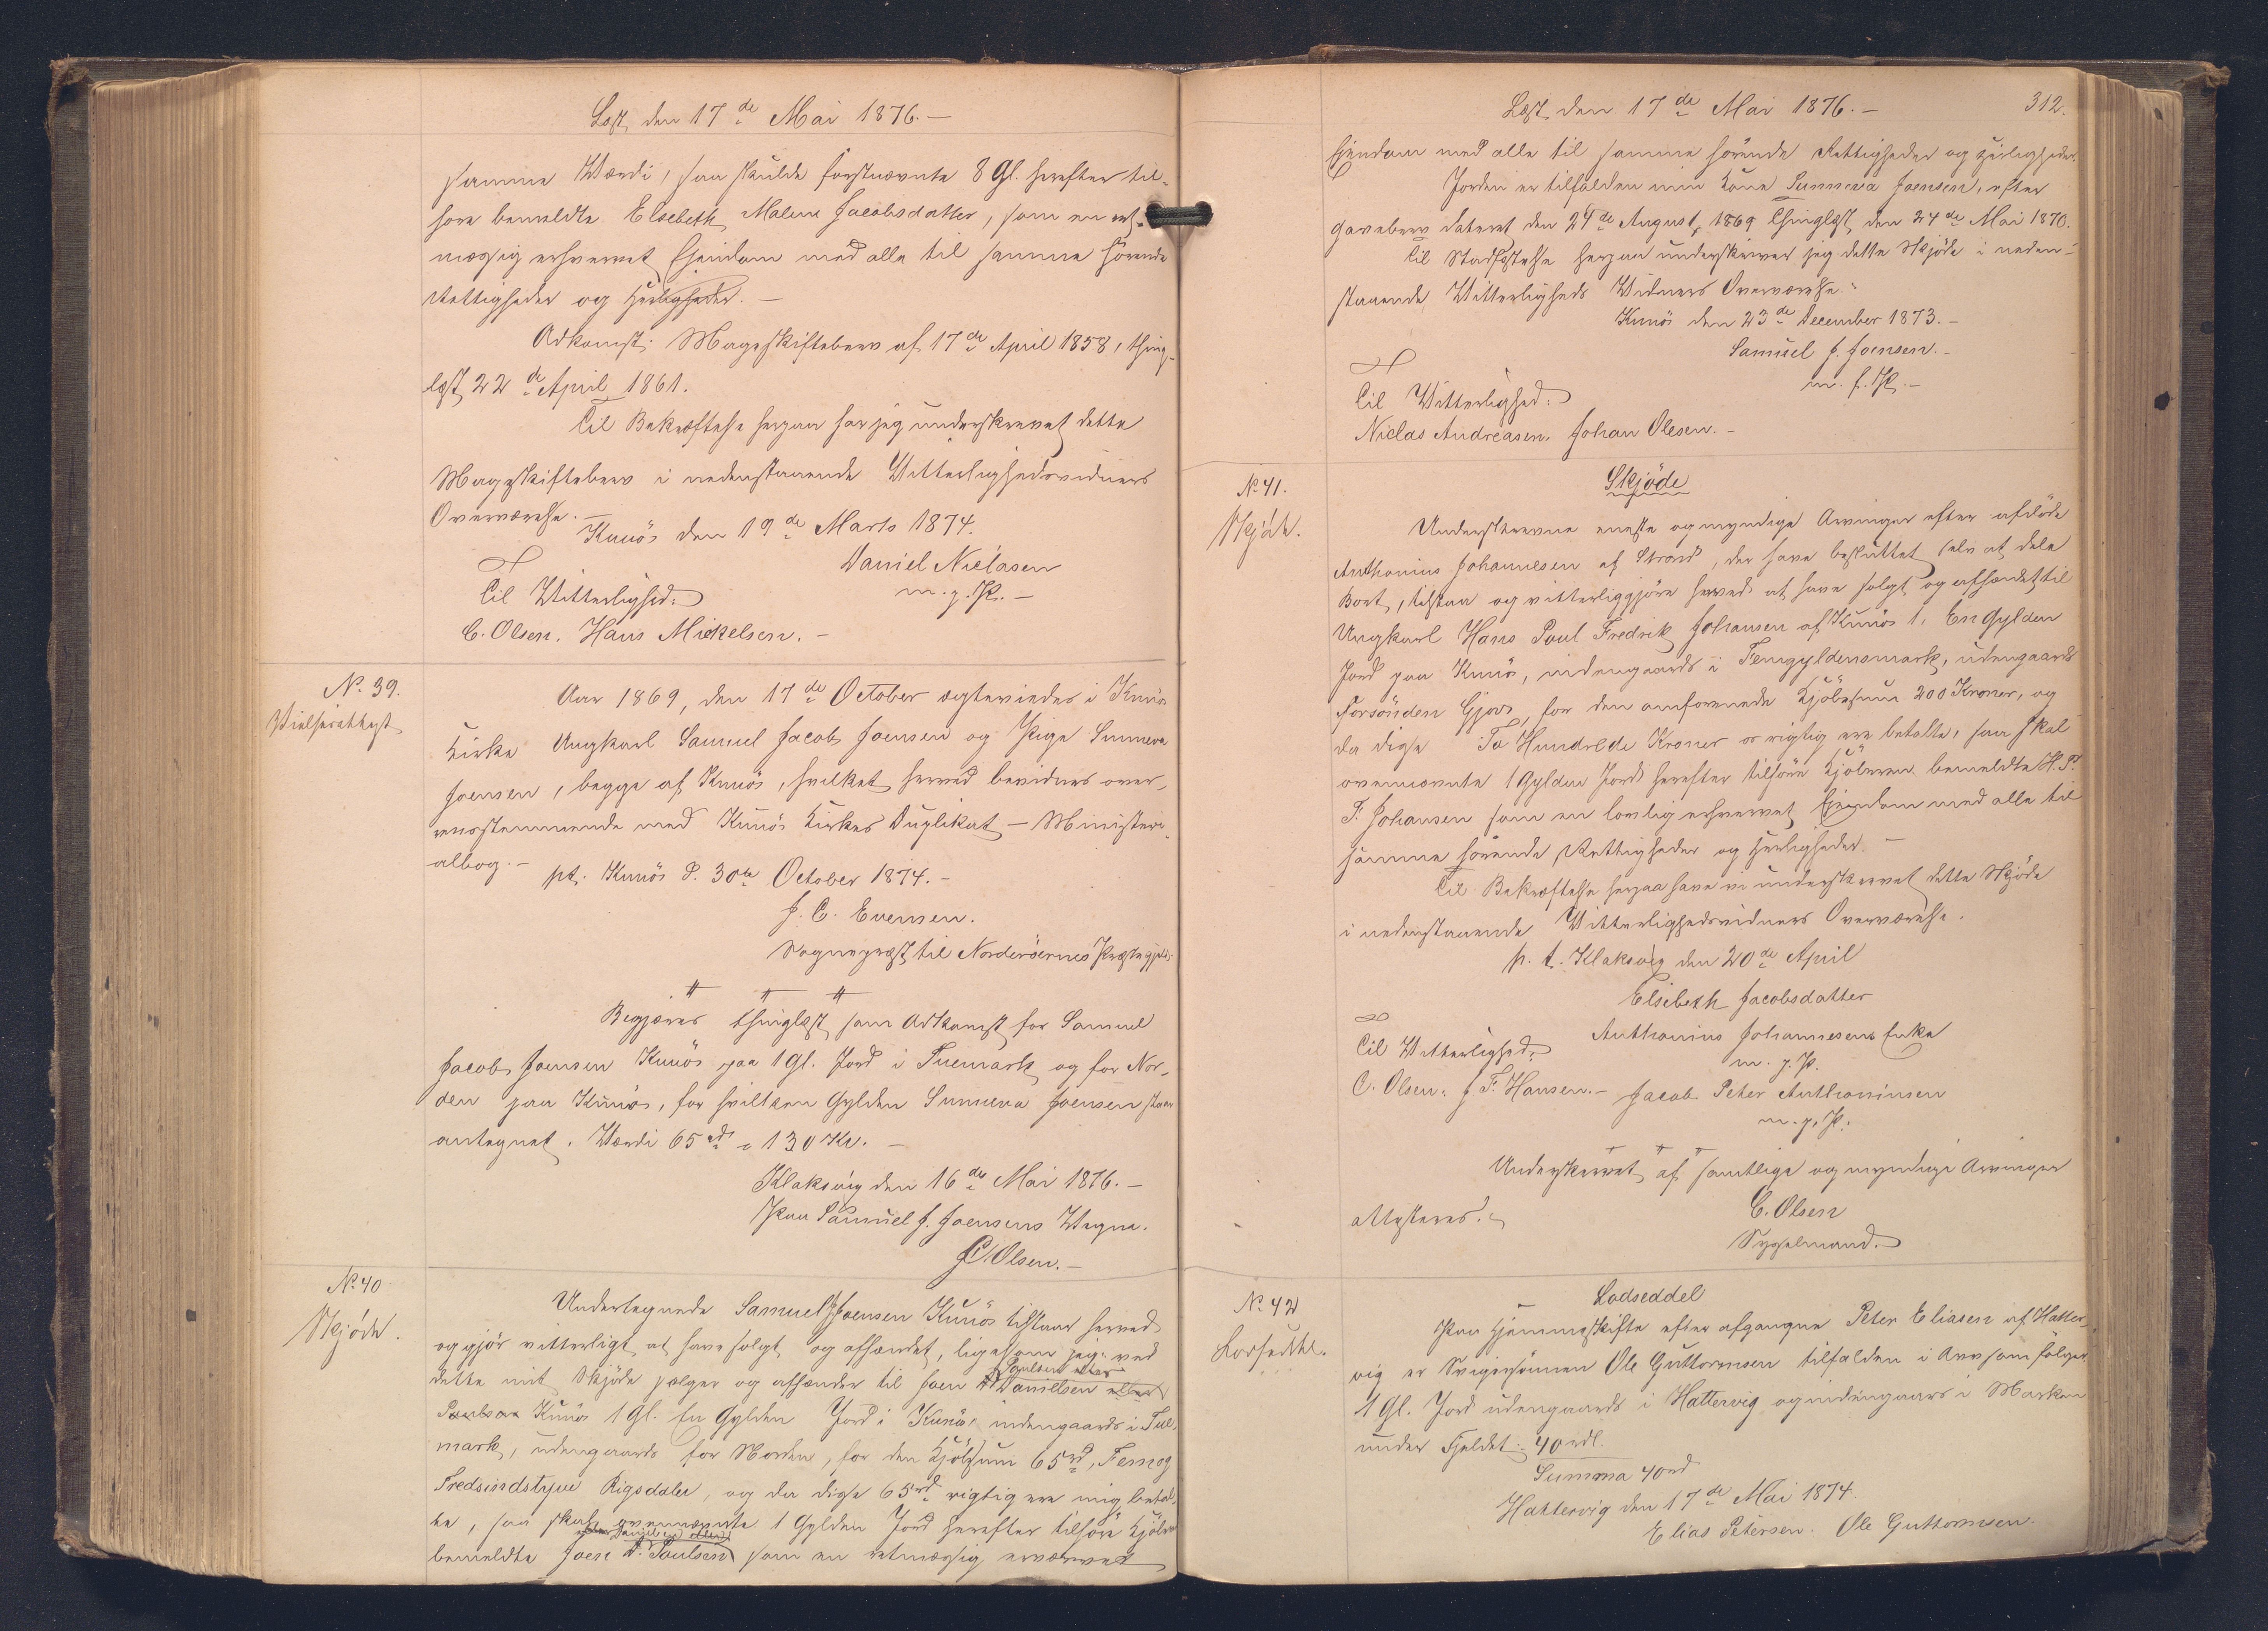 Læst den 17de Mai 1876.-
samme Værdi, saa skulde førstnævnte 8 Gl. herefter til-
høre bemeldte Elsebeth Malene Jacobsdatter, som en ret-
mæssig erhvervet Eiendom med alle til samme hörende
Rettigheder og Herligheder. -
Adkomst: Mageskiftebrev af 17de April 1858, thing-
læst 22de April 1861.
Til Bekræftelse herpaa har jeg underskrevet dette
Mageskiftebrev i nedenstaaende Vitterlighedsvidners
Overværelse. -
Kunös den 19de Marts 1874.
Daniel Niclasen
m. p. P. -
Til Vitterlighed:
C. Olsen. Hans Mickelsen. -
No. 39.
Vielsesattest
Aar 1869, den 17de October ægteviedes i Kunös
Kirke Ungkarl Samuel Jacob Joensen og Pige Sunneva
Joensen, begge af Kunös, hvilket herved bevidnes over-
ensstemmende med Kunös Kirkes Duplikat - Ministeri-
albog. -
pt. Kunös d. 30te October 1874. -
J. C. Evensen.
Sognepræst til Norderöernes Præstegjeld.
Begjæres thinglæst som Adkomst for Samuel
Jacob Joensen Kunös paa 1 Gl. Jord i Tuemark og for Nor-
den paa Kunös, for hvilken Gylden Sunneva Joensen staar
antegnet. Værdi 65 rd = 130 Kr. -
Klaksvig den 16de Mai 1876. -
Paa Samuel J. Joensens Vegne.
C. Olsen. -
No. 40
Skjöde.
Undertegnede Samuel J. Joensen Kunös tilstaar herved
og gjör vitterligt at have solgt og afhændet, ligesom jeg ved
Poulsen eller
dette mit Skjöde sælger og afhænder til Joen D. Danielsen eller
Poulsen Kunös 1 Gl. En Gylden Jord i Kunös, indengaards i Tue-
mark, udengaards for Norden, for den Kjöbesum 65 rd, Femog
Tredsindstyve Rigsdaler, og da disse 65 rd rigtig ere mig betal-
te, saa skal ovennævnte 1 Gylden Jord herefter tilhöre Kjöbern
Danielsen eller
bemeldte Joen D. Poulsen som en retmæssig erværvet
312.
Læst den 17de Mai 1876. -
Eiendom med alle til samme hörende Rettigheder og Herligheder.
Jorden er tilfalden min Kone Sunneva Joensen, efter
Gavebrev dateret den 24de August 1869 thinglæst den 24de Mai 1870.
Til Stadfæstelse herpaa underskriver jeg dette Skjöde i neden-
staaende Vitterligheds Vidners Overværelse.
Kunös den 23de December 1873. -
Samuel J. Joensen. -
m. f. P. -
Til Vitterlighed:
Niclas Andreasen. Johan Olesen. -
No. 41.
Skjöde.
Skjöde
Underskrevne eneste og myndige Arvinger efter afdöde
Anthonius Johannesen af Strönd, der have besluttet selv at dele
Boet, tilstaa og vitterliggjöre herved at have solgt og afhændet til
Ungkarl Hans Poul Fredrik Johansen af Kunös 1, En Gylden
Jord paa Kunös, indengaards i Femgyldensmark, udengaards
Forsönden Gjov, for den omforenede Kjöbesum 200 Kroner, og
da disse To Hundrede Kroner os rigtig ere betalte, saa skal
ovennævnte 1 Gylden Jord herefter tilhöre Kjöberen bemeldte H. P.
F. Johansen som en lovlig erhvervet Eiendom med alle til
samme hörende Rettigheder og Herligheder. -
Til Bekræftelse herpaa have vi underskrevet dette Skjöde
i nedenstaaende Vitterlighedsvidners Overværelse.
p. t. Klaksvig den 20de April
Elsebeth Jacobsdatter
Anthonius Johannesens Enke
m. p. P.
Til Vitterlighed:
C. Olsen. J. F. Hansen. -
Jacob Peter Anthoninsen
m. p. P.
Underskrevet af samtlige og myndige Arvinger
attesteres.
C. Olsen
Sysselmand.
No. 42
Lodseddel.
Lodseddel
Paa Hjemmeskifte efter afgangne Peter Eliasen af Hatter-
vig er Svigersönnen Ole Guttormsen tilfalden i Arv som fölger
1 Gl. Jord udengaards i Hattervig og indengaards i Marken
under Fjeldet: 40 rdl.
Summa 40 rd
Hattervig den 17de Mai 1874.
Elias Petersen. Ole Guttormsen.